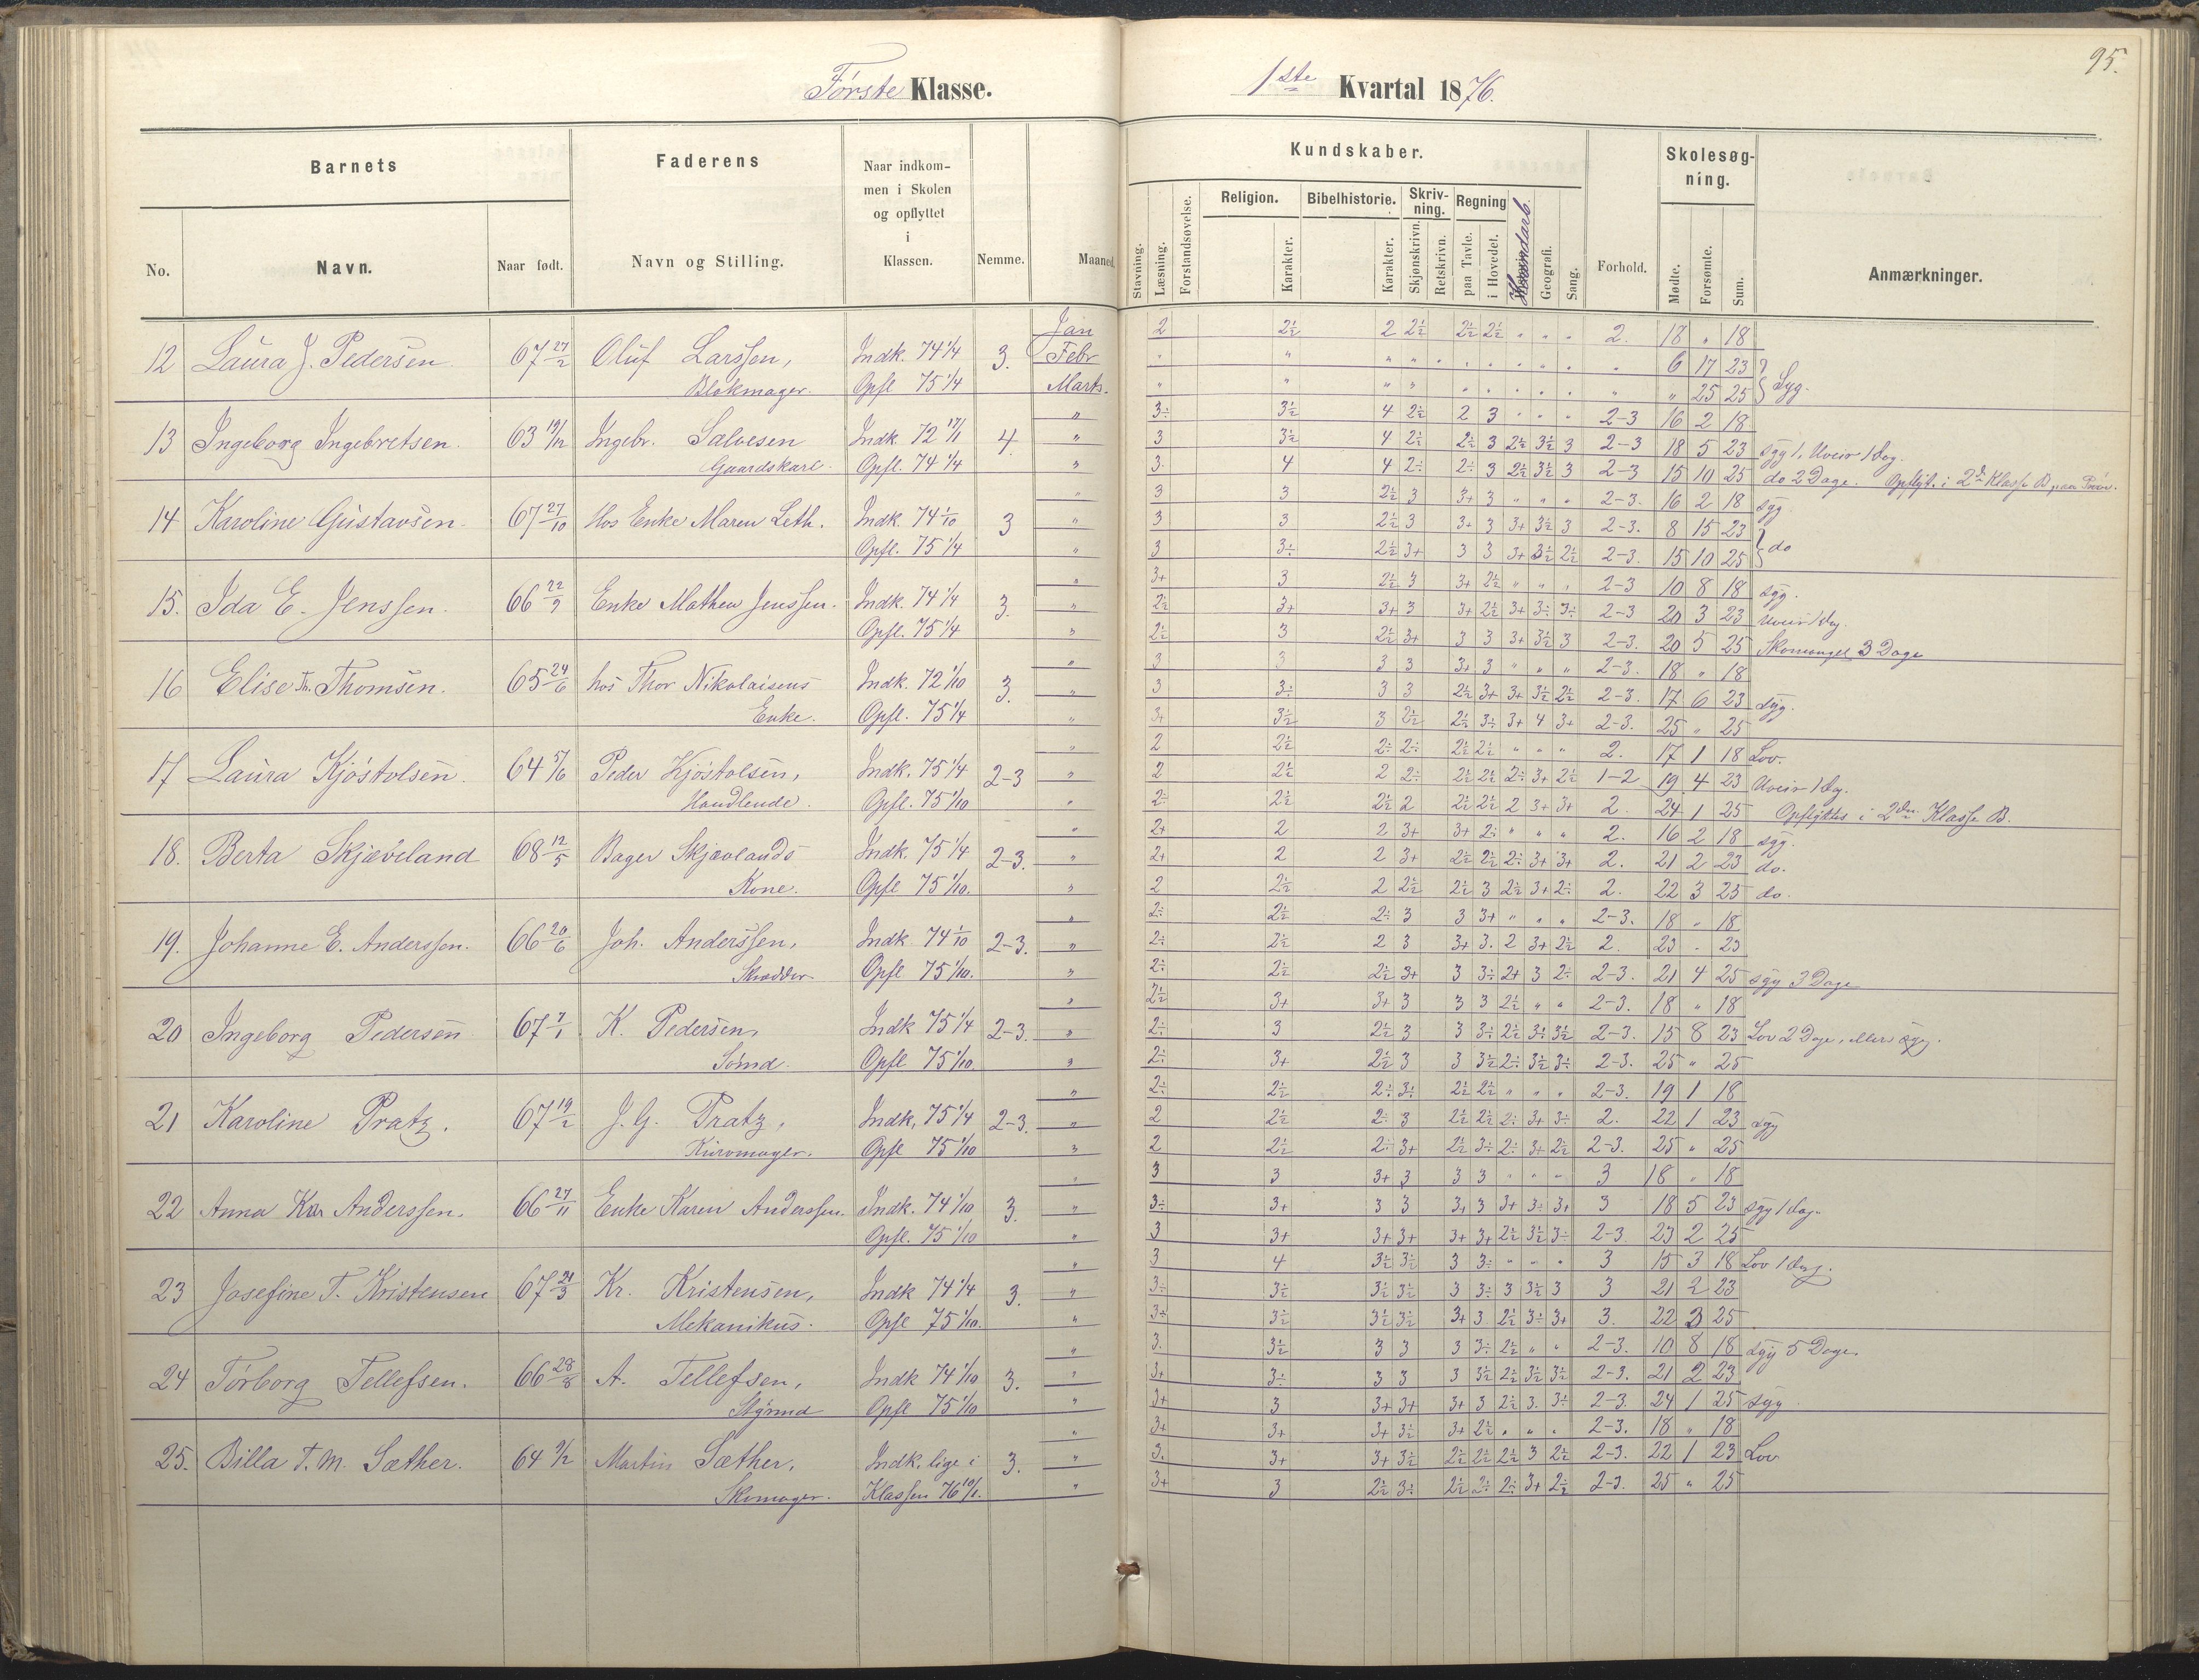 95.
Første Klasse.
1ste Kvartal 1876.
Barnets
Faderens
Naar indkom-
men i Skolen
og opflyttet
i
Klassen.
No.
Navn.
Naar født.
Navn og Stilling.
Nemme.
Maaned.
Kundskaber.
Skolesøg-
ning.
Stavning.
Læsning.
Forstandsøvelse.
Religion.
Karakter.
Bibelhistorie.
Karakter.
Skriv-
ning.
Skjønskrivn.
Retskrivn.
Regning
paa Tavle.
i Hovedet.
Haandarb.
Geografi.
Sang.
Forhold.
Mødte.
Forsømte.
Sum.
Anmærkninger.
12 Laura J. Pedersen 67 27/2 Oluf Larssen, Indk. 74 1/4 3. Jan 2 2½ 2 2½ 2½ 2½ " " " 2. 18 " 18
Febr 6 17 23
Blokmager. Opfl 75 1/4 Marts. " 25 25 Syg.
13 Ingeborg Ingebretsen. 63 19/12 Ingebr. Salvesen Indk. 72 17/1 4. " 3÷ 3½ 4 2½ 2 3 " " " 2-3 16 2 18
" 3 3½ 4 2½ 2½ 3 2½ 3½ 3 2-3 18 5 23 syg 1, Uveir 1 Dag.
Gaardskarl. Opfl. 74 1/4 " 3. 4 4 2÷ 2÷ 3 2½ 3½ 3 2-3 15 10 25 do 2 Dage. Opflyt. i 2den Klasse B paa Prøve.
14 Karoline Gustavsen 67 27/10 Hos Enke Maren Leth. Indk. 74 1/10 3 " 3 3 2½ 3 3+ 3 " " " 2-3. 16 2 18 syg
" 3 3 2½ 3 3+ 3 3+ 3½ 3 2-3. 8 15 23
Opfl. 75 1/4 " 3 3÷ 2½ 3+ 3 3 3+ 3½ 2½ 2-3. 15 10 25 do
15. Ida E. Jenssen. 66 22/9 Enke Mathea Jenssen. Indk. 74 1/4 3. " 3+ 3 2½ 3 3+ 2½ " " " 2-3 10 8 18 syg.
" 2½ 3+ 3+ 3 3+ 2½ 3+ 3÷ 3÷ 2-3 20 3 23 Uveir 1 Dag.
Opfl. 75 1/4 " 2½ 3 2½ 3+ 3 3 3+ 3½ 3 2-3. 20 5 25 Skomangel 3 Dage
16 Elise Th. Thomsen. 65 24/6 hos Thor Nikolaisens Indk. 72 1/10 3. " 3 3 3 3 3+ 3 " " " 2-3. 18 " 18
" 3 3÷ 3 3 2½ 3+ 3+ 3½ 2½ 2-3. 17 6 23 syg.
Enke. Opfl. 75 1/4 " 3+ 3½ 3 2½ 2½ 3÷ 3+ 4 3+ 2-3. 25 " 25
17 Laura Kjøstolsen. 64 5/6 Peder Kjøstolsen, Indk. 75 1/4 2-3 " 2 2½ 2÷ 2÷ 2½ 2½ " " " 2. 17 1 18 Lov.
" 2 2½ 2 2÷ 2½ 2½ 2÷ 3+ 2½ 1-2 19 4 23 Uveir 1 Dag.
Handlende. Opfl. 75 1/10 " 2÷ 2½ 2½ 2 2½ 2½ 2 3+ 3+ 2. 24 1 25 Opflyttes i 2den Klasse B.
18. Berta Skjæveland 68 12/5 Bager Skjævlands Indk. 75 1/4 2-3. " 2+ 2 2 3+ 3+ 2÷ " " " 2. 16 2 18 syg.
" 2+ 2 2 3+ 2½ 2½ 2÷ 3+ 3+ 2. 21 2 23 do.
Kone. Opfl 75 1/10. " 2 2½ 2 2½ 2½ 3 2½ 3+ 2÷ 2. 22 3 25 do.
19. Johanne E. Anderssen. 66 20/6 Joh. Anderssen, Indk 74 1/10 2-3. " 2÷ 2½ 2÷ 3 3 3+ " " " 2-3. 18 " 18
" 2÷ 2½ 2 3 3+ 3. 2 3+ 2½ 2. 23 " 23
Skrædder. Opfl 75 1/10. " 2÷ 2½ 2½ 3+ 3 3÷ 2+ 3 2÷ 2-3. 21 4 25 syg 3 Dage
20 Ingeborg Pedersen 67 7/1 K. Pedersen, Indk 75 1/4 2-3. " 2½ 3+ 3+ 3 3 3 2½ " " 2-3. 18 " 18
" 2÷ 3 2½ 3 3 3÷ 2½ 3÷ 3½ 2-3. 15 8 23 Lov 2 Dage, ellers syg.
Sømd. Opfl 75 1/10. " 2÷ 3+ 2½ 3 3 3½ 2÷ 3½ 3÷ 2-3. 25 " 25
21 Karoline Pratz. 67 19/2 J. G. Pratz, Indk, 75 1/4 2-3. " 2÷ 2½ 2÷ 3÷ 2½ 2½ " " " 2-3. 19 1 18
" 2 2½ 2÷ 3 2½ 2½ 2÷ 3+ 3÷ 2. 22 1 23 syg
Kurvmager. Opfl 75 1/10 " 2 2½ 2÷ 3+ 2½ 3÷ 2÷ 3+ 2½ 2-3. 25 " 25
22 Anna Anderssen. 66 27/11 Enke Karen Anderssen. Indk. 74 1/10 3. " 3 3 3+ 3 3 3 " " " 3 18 " 18
" 3÷ 3+ 3 3 3+ 3 3+ 3÷ 3+ 3 18 5 23 syg 1 Dag.
Opfl. 75 1/10 " 3 3+ 3+ 3+ 3+ 3+ 2½ 3½ 3÷ 2-3 23 2 25
23 Josefine T. Kristensen 67 21/3 Kr. Kristensen, Indk 74 1/4 3. " 3 4 3½ 3½ 3 3÷ " " " 3 15 3 18 Lov 1 Dag.
" 3÷ 3½ 3½ 3½ 3 3÷ 3 3½ 3 3 21 2 23
Mekanikus. Opfl 75 1/10. " 3÷ 3½ 3½ 3½ 3+ 3 2½ 3÷ 3+ 3. 22 3 25
24 Torborg Tellefsen. 66 28/8 A. Tellefsen, Indk 74 1/10 3. " 3. 3½ 3 3 3 3÷ 2½ " " 2-3. 10 8 18 syg 5 Dage.
" 3+ 3÷ 3 3 3 3½ 2½ 3½ 3½ 2-3. 21 2 23
Styrmd Opfl 75 1/10 " 3+ 3 3+ 3+ 3+ 3 2½ 3. 3÷ 2-3. 24 1 25 syg
25. Billa T. M. Sæther. 64 9/2 Martin Sæther, Indk. lige i 3. " 3+ 3+ 3+ 3½ 3+ 2½ " " " 2-3. 18 " 18
" 3. 3+ 3+ 3½ 2½ 2½ 2½ 3 2½ 2-3. 22 1 23 Lov
Skomager. Klassen 76 10/1. " 3+ 3 2½ 3÷ 2½ 2÷ 2÷ 3+ 2½ 2-3. 25 " 25